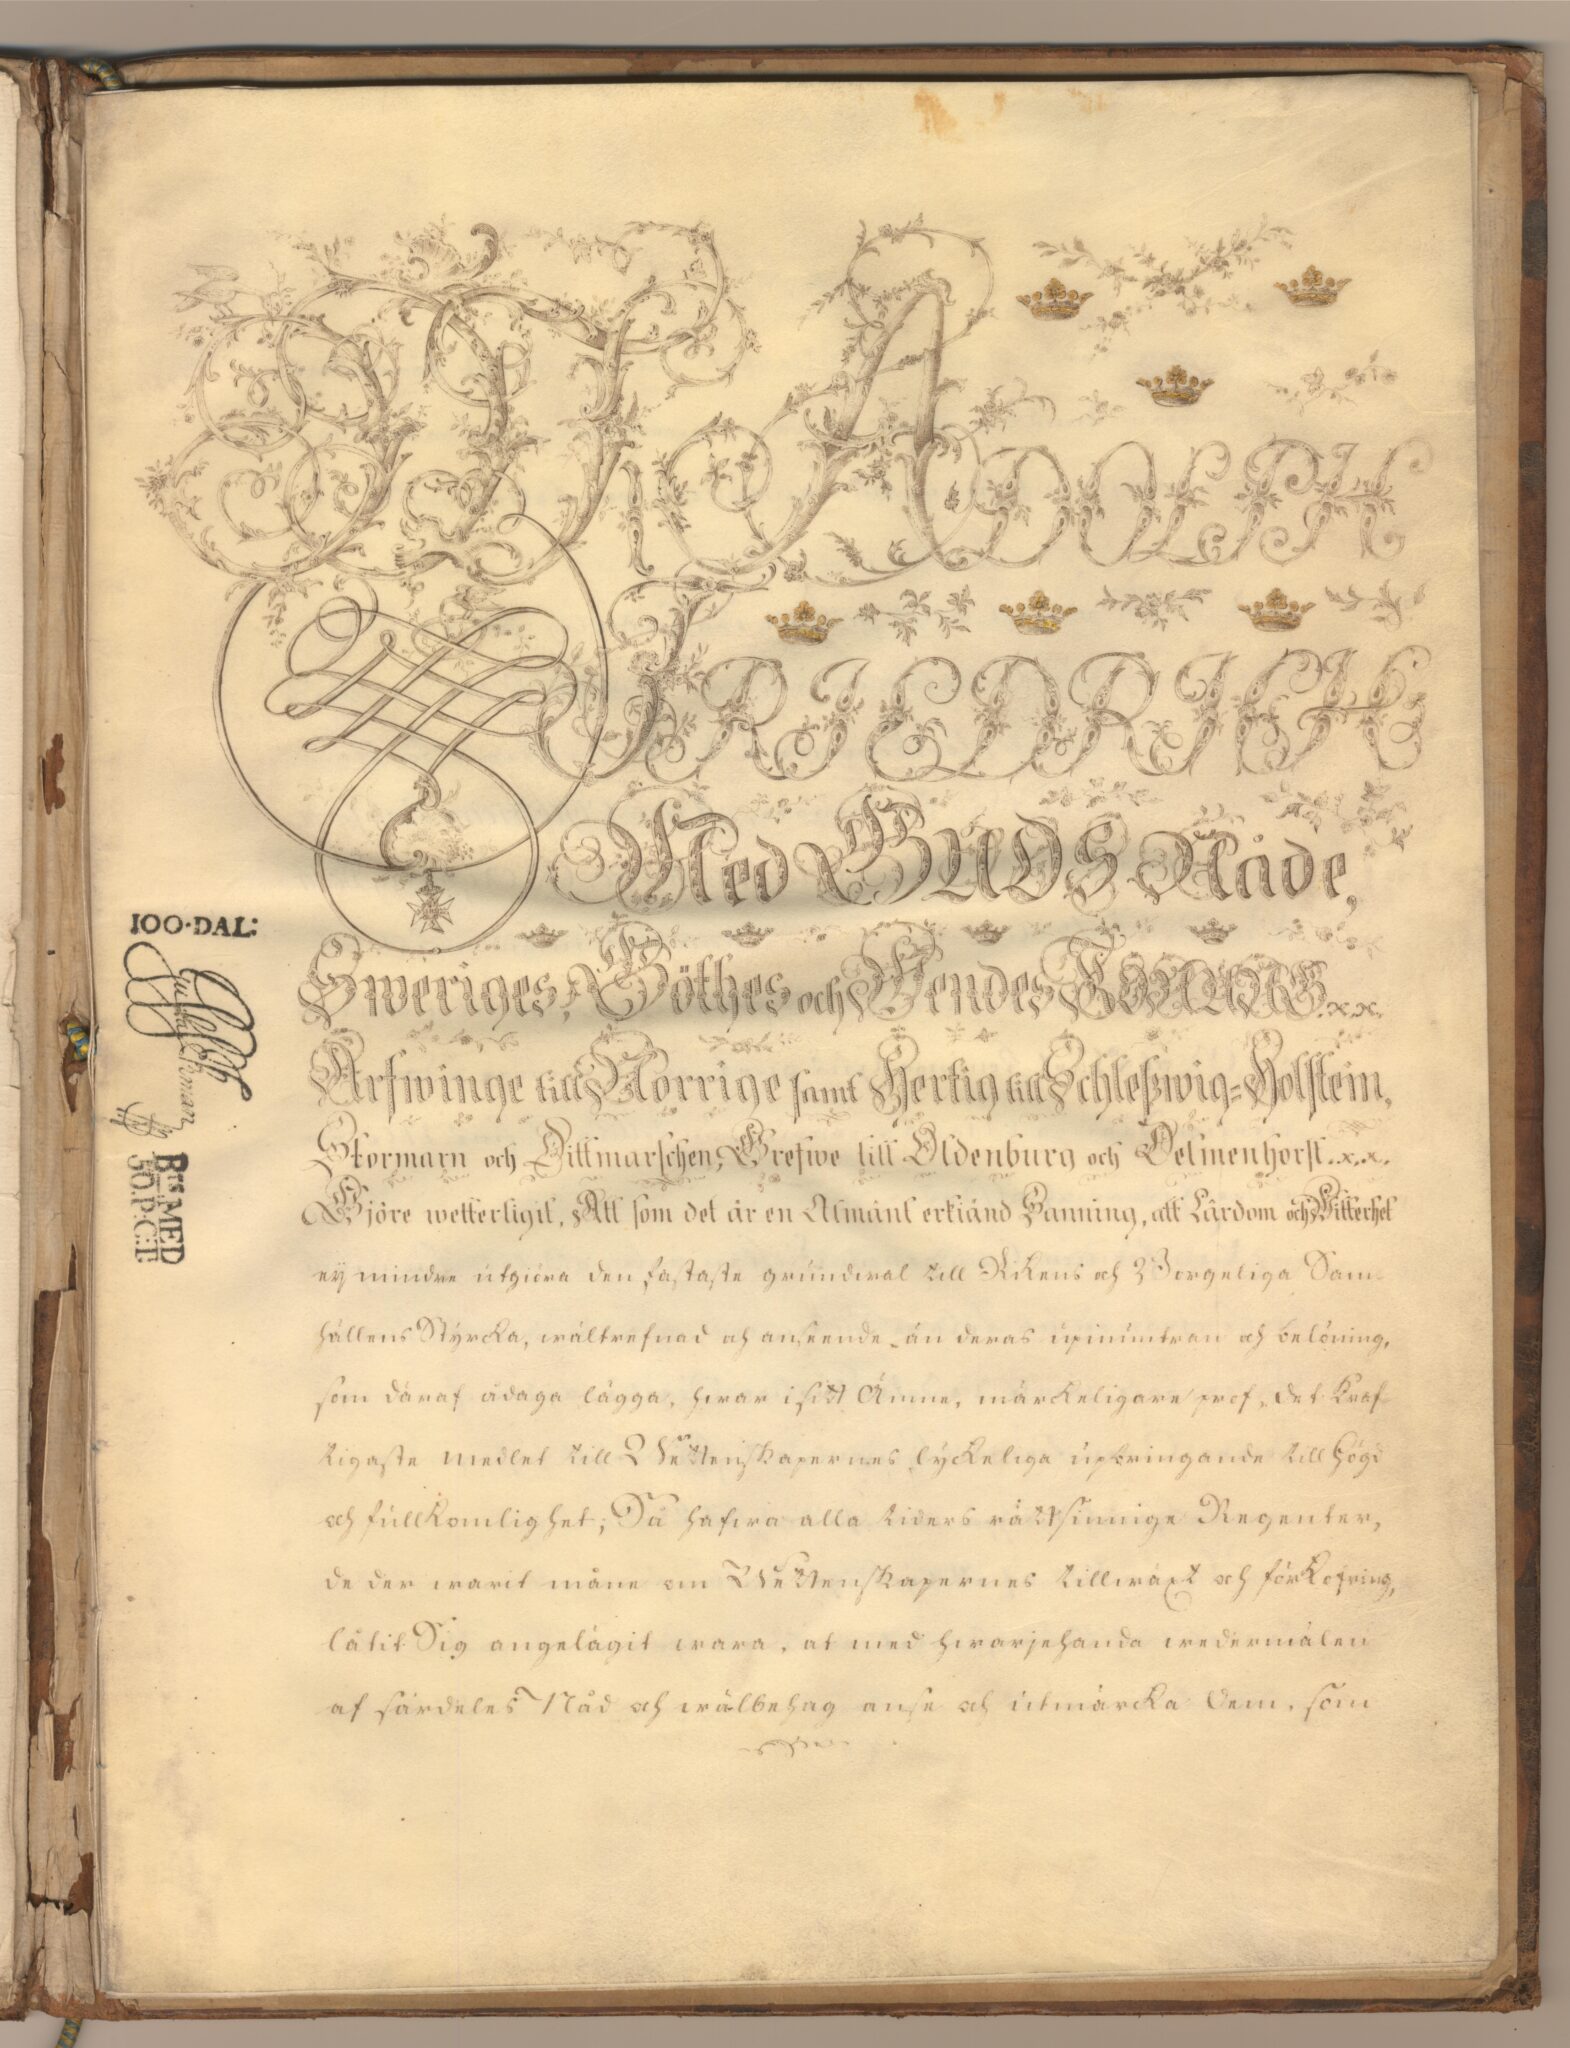 Wi ADOLPH
FRIEDRICH
Med GUDS Nåde,
Sweriges, Göthes och Wendes KONUNG .x.x.
Arfwinge till Norrige samt Hertig till Schleßwig=Holstein,
Stormarn och Dittmarschen, Grefwe till Oldenburg och Delmenhorst .x.x.
Giöre wetterligit, Att som det är en Almänt erkiänd Sanning, att Lärdom och Witterhet
ey mindre utgiöra den fastaste grundwal till Rikens och Borgeliga Sam-
hällens Styrcka, wältrefnad och anseende, än deras upmuntran och belöning,
som däraf ådaga lägga, hwar i sitt Ämne, märckeligare prof, det kraf
tigaste medlet till Wettenskapernes lyckeliga upbringande till högd
och fullkomlighet; Så hafwa alla tiders rättsinnige Regenter,
de der warit måne om Wettenskapernes tillwäxt och förkofring,
låtit Sig angelägit wara, at med hwarjehanda wedermälen
af särdeles Nåd och wälbehag anse och utmärcka Dem, som
100·DAL:
Brs MED
50.P.C:T.